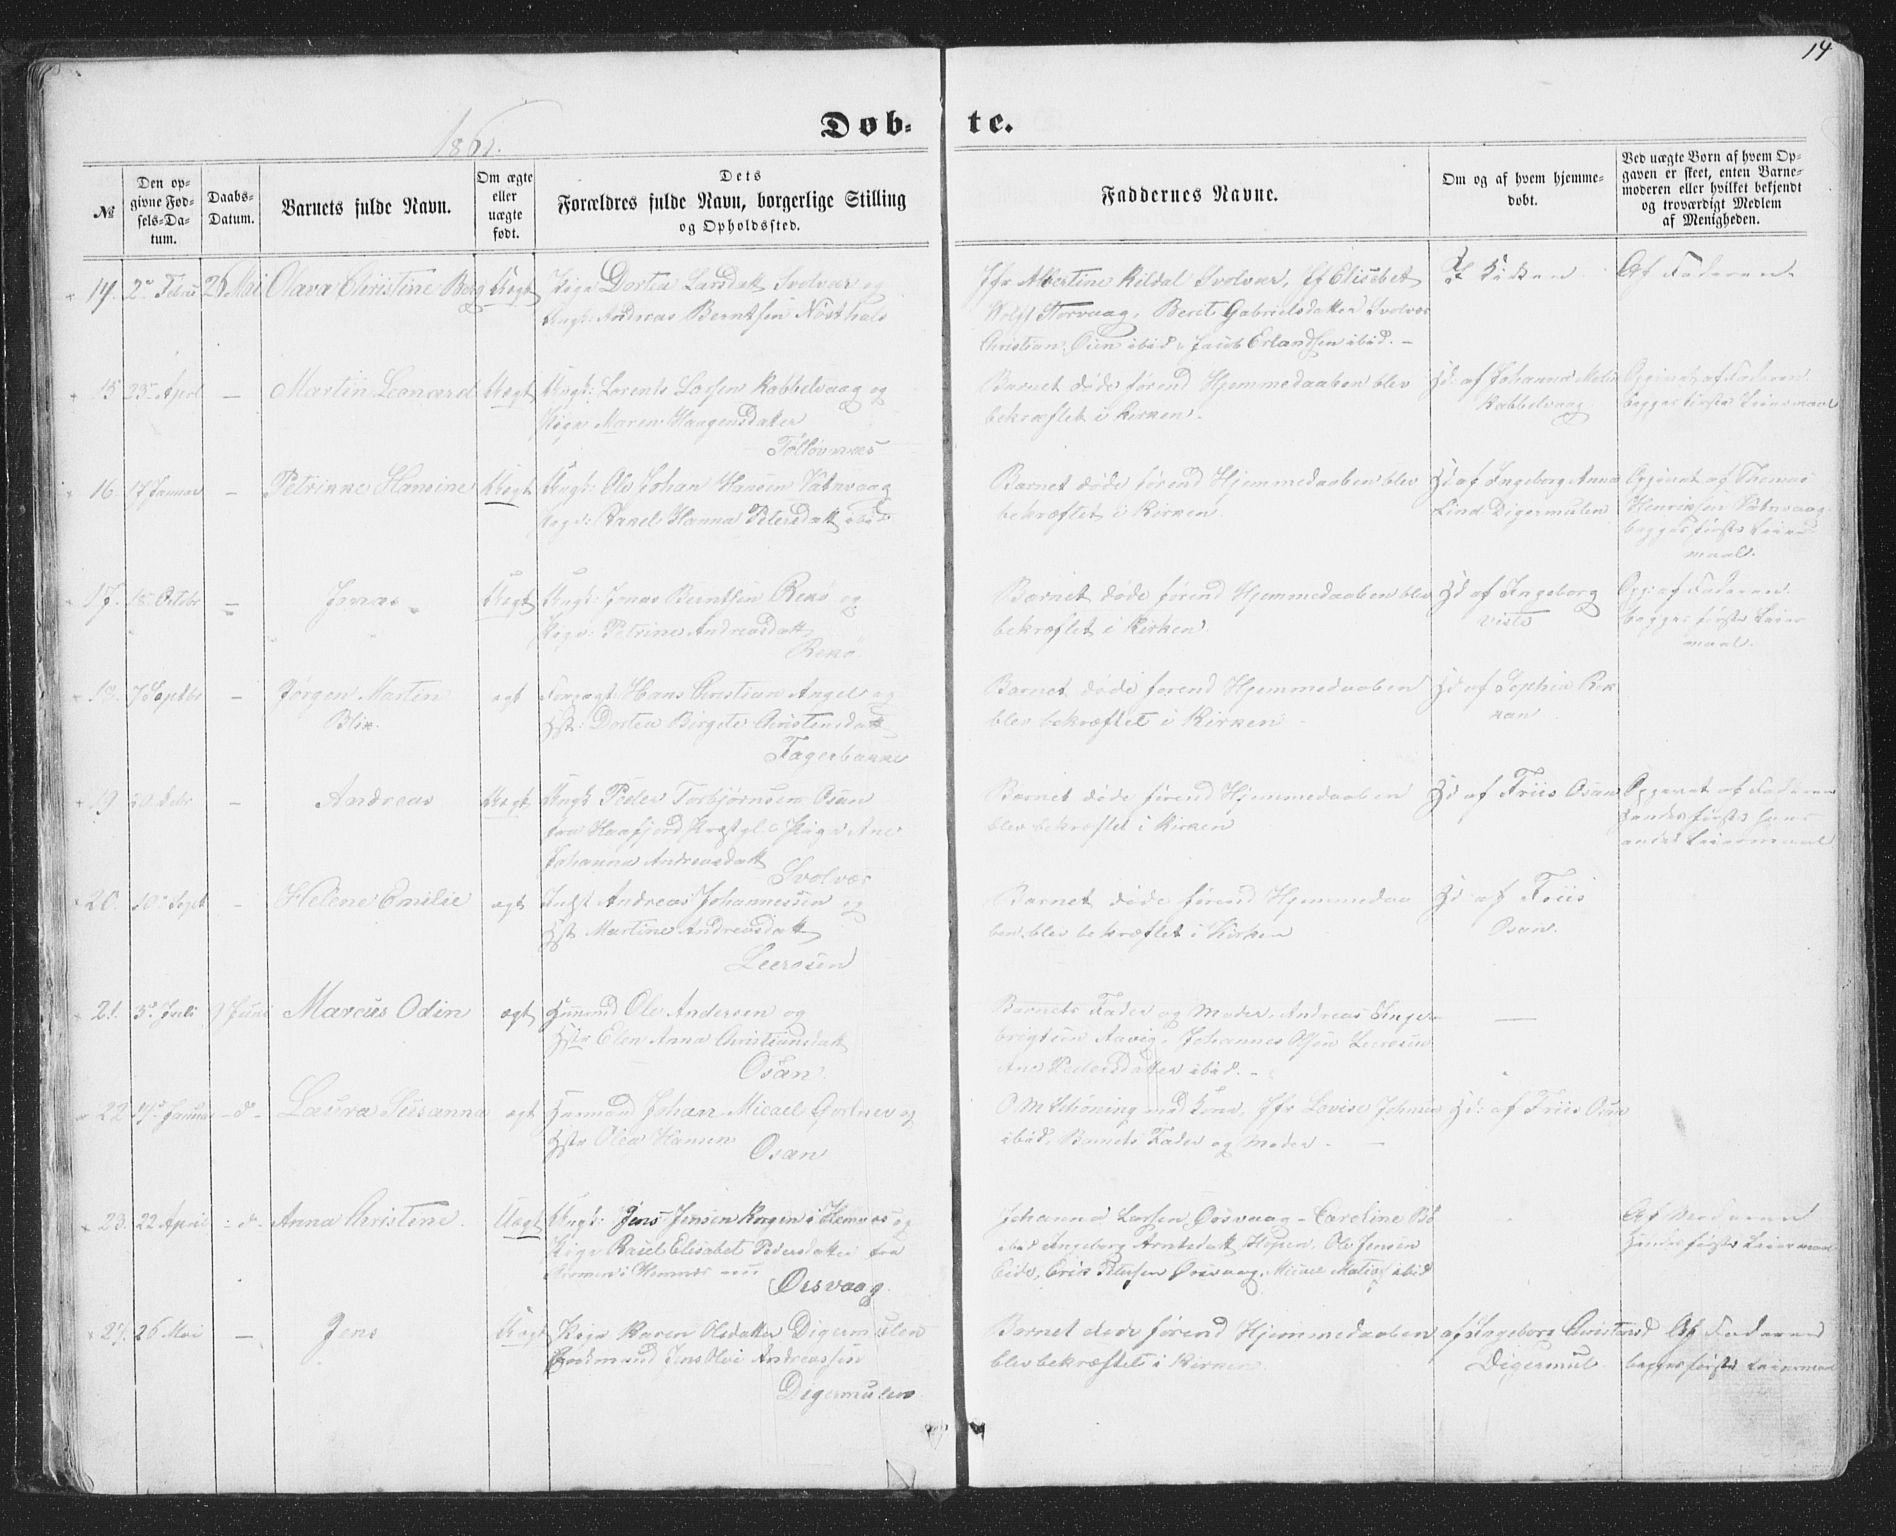 14
1861.
Døb- te.
№
Den opgivne Fødsels-Datum.
Daabs-Datum.
Barnets fulde Navn.
Om ægte eller uægte født.
Dets Forældres fulde Navn, borgerlige Stilling og Opholdssted.
Faddernes Navne.
Om og af hvem hjemmedøbt.
Ved uægte Børn af hvem Opgaven er skeet, enten Barnemoderen eller hvilket bekjendt og troværdigt Medlem af Menigheden.
14. 2 Febru 26 Mai Olava Christine Berg Uægt Pige Dortea Larsdatt Svolvær og
Ungk: Andreas Berntsen Nösthals
Jfr Albertine Kildal Svolvær, Elisabet
Wolff Storvaag, Berit Gabrielsdatter Svolvær
Christian Oien ibid, Jacob Erlandsen ibid. —
I Kirken
Af Faderen
15 23 April — Martin Leonard Uægt Ungk: Lorents Larsen Kabbelvaag og
Pige Maren Haagensdatter
Barnet døde førend Hjemmedaaben blev
bekræftet i Kirken.
Hd: af Johanna
Kabbelvaag
Opgivet af Faderen
begges første Leiermaal
16 17 Januar — Petrikke Hansine Uægt Ungk: Ole Johan Hansen Vatnvaag
Pige: Hanna Petersdatt ibid
Barnet døde førend Hjemmedaaben blev
bekræftet i Kirken.
Hd af Ingeborg Anna
Lind Digermulen
Opgivet af Thomas
Henriksen Vatnvaag
begges første Leier-
maal.
17. 18 Octobr — Jonas Uægt Ungk: Jonas Berntsen Rekø og
Pige: Petrine Andreasdatt
Rekø.
Barnet døde førend Hjemmedaaben blev
bekræftet i Kirken
Hd af Ingeborg
Opg: af Faderen
begges første Leier
maal.
18. 7 Septbr — Jørgen Martin ægt Hans Christian Angel og
Blix. Hst: Dortea Birgete Christensdatt
Barnet døde førend Hjemmedaaben
blev bekræftet i Kirken —
Hd af Sophia
19 20 — Andreas Uægt Ungk Peder Torbjørnsen Osan
fra Haafjord Præstgl. & Pige Ane
Johanna Andreasdatt
Svolvær
Barnet døde førend Hjemmedaaben
blev bekræftet i Kirken
Hd af Friis Osan
Opgivet af Faderen
hendes første hans
andet Leiermaal
20. 10 Sept — Helene Emilie ægt Andreas Johannessen og
Hst Martine Andreasdatt
Leerosen
Barnet døde førend Hjemmedaa
ben blev bekræftet i Kirken
Hd af Friis
Osan.
21. 3 Juli 9 Juni Marcus Odin ægt Huusmd Ole Andersen og
Hstr Elen Anna Christiansdatt
Osan.
Barnets Fader og Moder, Andreas Inge-
brigtsen Aavig, Johannes Olsen Leerosen
Ane Pedersdatter ibid. —
—
22 Januar - d° - Laura Susanna ægt Huusmand Johan Micael Gortner og
Hstr Olea Hansen
Osan
O M Schöning med Kone, Jfr Lovise Johnsen
ibid, Barnets Fader og Moder. —
Hd: af Friis Osan
23. 22 April - d° Anna Christene. Uægt Ungk: Jens Jensen i Hemnæs og
Pige Elisabet Pedersdatter fra
i Hemnæs nu
Ørsvaag.
Johanna Larsen Ørsvaag - Caroline Bö
ibid Ingeborg Arntsdatt Hopen, Ole Jensen
Eide, Erik Petersen Orsvaag, ibid
Af Moderen
hendes første Leiermaal
24. 26 Mai — Jens Uægt Pige Karen Olsdatter Digermulen
Andreassen
Digermulen
Barnet døde førend Hjemmedaaben
blev bekræftet i Kirken
af Ingeborg Christensd
Digermul
Af Faderen
begges første Leiermaal